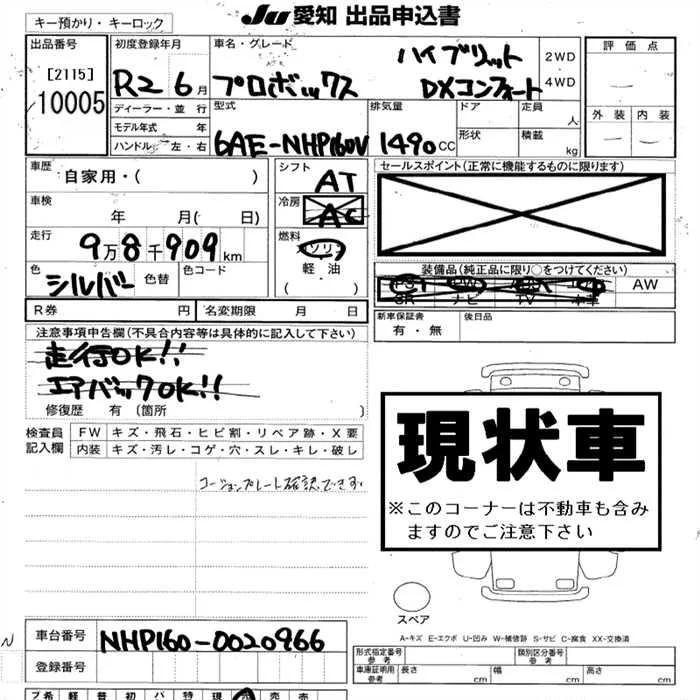 Ju 愛知 出品申込書
キー預かり・キーロック
出品番号
[2115]
10005
初度登録年月
R2 6月
ディーラー・並 行
モデル年式 年
ハンドル 左・右
車名・グレード
プロボックス
ハイブリット
DXコンフォート
2WD
4WD
型式
6AE-NHP160V
排気量
1490cc
ドア
形状
定員
人
積載
kg
評 価 点
外 装 内 装
車歴
自家用・( )
車検
年 月( 日)
走行
9万8千909km
色
シルバー
色替
色コード
シフト
AT
冷房
AC
燃料
ガソリン
軽・油
( )
セールスポイント(正常に機能するものに限ります)
装備品(純正品に限り○をつけてください)
SR ナビ TV 本革
AW
R券 円
名変期限 月 日
新車保証書
有・無
後日品
注意事項申告欄(不具合内容等は具体的に記入して下さい)
走行OK!!
エアバックOK!!
修復歴 有 (箇所 )
検査員
記入欄
FW キズ・飛石・ヒビ割・リペア跡・X要
内装 キズ・汚レ・コゲ・穴・スレ・キレ・破レ
コーションプレート確認できず
現状車
※このコーナーは不動車も含み
ますのでご注意下さい
スペア
A-キズ E-エクボ U-凹み W-補修跡 S-サビ C-腐食 XX-交換済
車台番号
NHP160-0020966
登録番号
形式指定番号
参 考
類別区分番号
参 考
車庫証明用
参 考
長さ cm
幅 cm
高さ cm